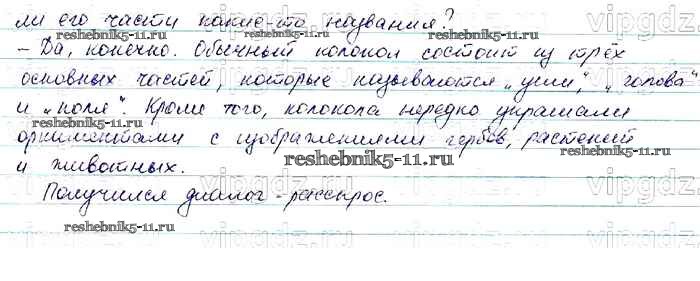 ли его части какие-то названия?
– Да, конечно. Обычный колокол состоит из трёх
основных частей, которые называются „уши", „голова"
и „поле". Кроме того, колокола нередко украшали
орнаментами с изображениями гербов, растений
и животных.
Получился диалог-расспрос.
reshebnik5-11.ru
reshebnik5-11.ru
reshebnik5-11.ru
reshebnik5-11.ru
vipgdz
vipgdz.com
vipgdz.com
vipgdz